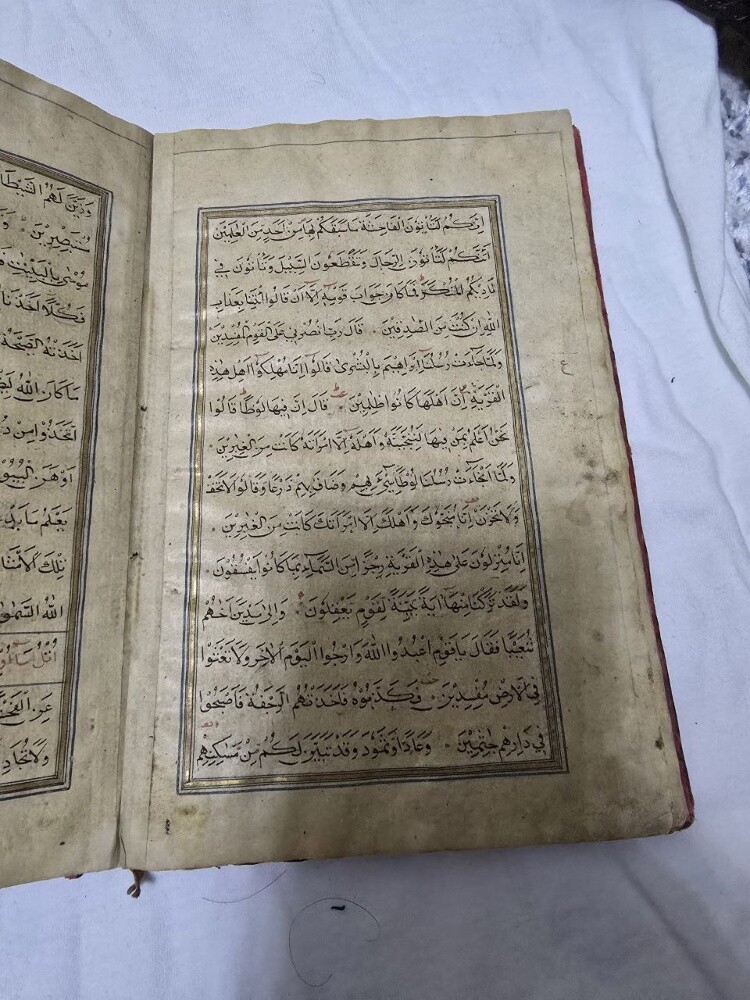 اِنَّكُمْ لَتَأْتُونَ الْفَاحِشَةَ مَا سَبَقَكُمْ بِهَا مِنْ اَحَدٍ مِنَ الْعٰلَمِينَ
اَئِنَّكُمْ لَتَأْتُونَ الرِّجَالَ وَتَقْطَعُونَ السَّبِيلَ وَتَأْتُونَ فِي
نَادِيكُمُ الْمُنْكَرَ فَمَا كَانَ جَوَابَ قَوْمِهٖ اِلَّا اَنْ قَالُوا ائْتِنَا بِعَذَابِ
اللّٰهِ اِنْ كُنْتَ مِنَ الصّٰدِقِينَ قَالَ رَبِّ انْصُرْنِي عَلَى الْقَوْمِ الْمُفْسِدِينَ
وَلَمَّا جَاءَتْ رُسُلُنَا اِبْرٰهِيمَ بِالْبُشْرٰى قَالُوا اِنَّا مُهْلِكُوا اَهْلِ هٰذِهِ
ع
الْقَرْيَةِ اِنَّ اَهْلَهَا كَانُوا ظٰلِمِينَ قَالَ اِنَّ فِيهَا لُوطًا قَالُوا
نَحْنُ اَعْلَمُ بِمَنْ فِيهَا لَنُنَجِّيَنَّهُ وَاَهْلَهُ اِلَّا امْرَاَتَهُ كَانَتْ مِنَ الْغٰبِرِينَ
وَلَمَّا اَنْ جَاءَتْ رُسُلُنَا لُوطًا سِيءَ بِهِمْ وَضَاقَ بِهِمْ ذَرْعًا وَقَالُوا لَا تَخَفْ
وَلَا تَحْزَنْ اِنَّا مُنَجُّوكَ وَاَهْلَكَ اِلَّا امْرَاَتَكَ كَانَتْ مِنَ الْغٰبِرِينَ
اِنَّا مُنْزِلُونَ عَلٰى اَهْلِ هٰذِهِ الْقَرْيَةِ رِجْزًا مِنَ السَّمَاءِ بِمَا كَانُوا يَفْسُقُونَ
وَلَقَدْ تَرَكْنَا مِنْهَا اٰيَةً بَيِّنَةً لِقَوْمٍ يَعْقِلُونَ وَاِلٰى مَدْيَنَ اَخَاهُمْ
شُعَيْبًا فَقَالَ يَا قَوْمِ اعْبُدُوا اللّٰهَ وَارْجُوا الْيَوْمَ الْاٰخِرَ وَلَا تَعْثَوْا
فِي الْاَرْضِ مُفْسِدِينَ فَكَذَّبُوهُ فَاَخَذَتْهُمُ الرَّجْفَةُ فَاَصْبَحُوا
فِي دَارِهِمْ جٰثِمِينَ وَعَادًا وَثَمُودَ وَقَدْ تَبَيَّنَ لَكُمْ مِنْ مَسٰكِنِهِمْ
وَزَيَّنَ لَهُمُ الشَّيْطَا
مُسْتَبْصِرِينَ
مُوسٰى بِالْبَيِّنٰتِ
فَكُلًّا اَخَذْنَا
اَخَذَتْهُ الصَّيْحَةُ
مَا كَانَ اللّٰهُ
اتَّخَذُوا مِنْ
اَوْهَنَ الْبُيُو
يَعْلَمُ مَا يَدْعُ
تِلْكَ الْاَمْثَا
اللّٰهُ السَّمٰو
اُتْلُ مَا اُو
عَنِ الْفَحْ
وَلَا تُجَادِ